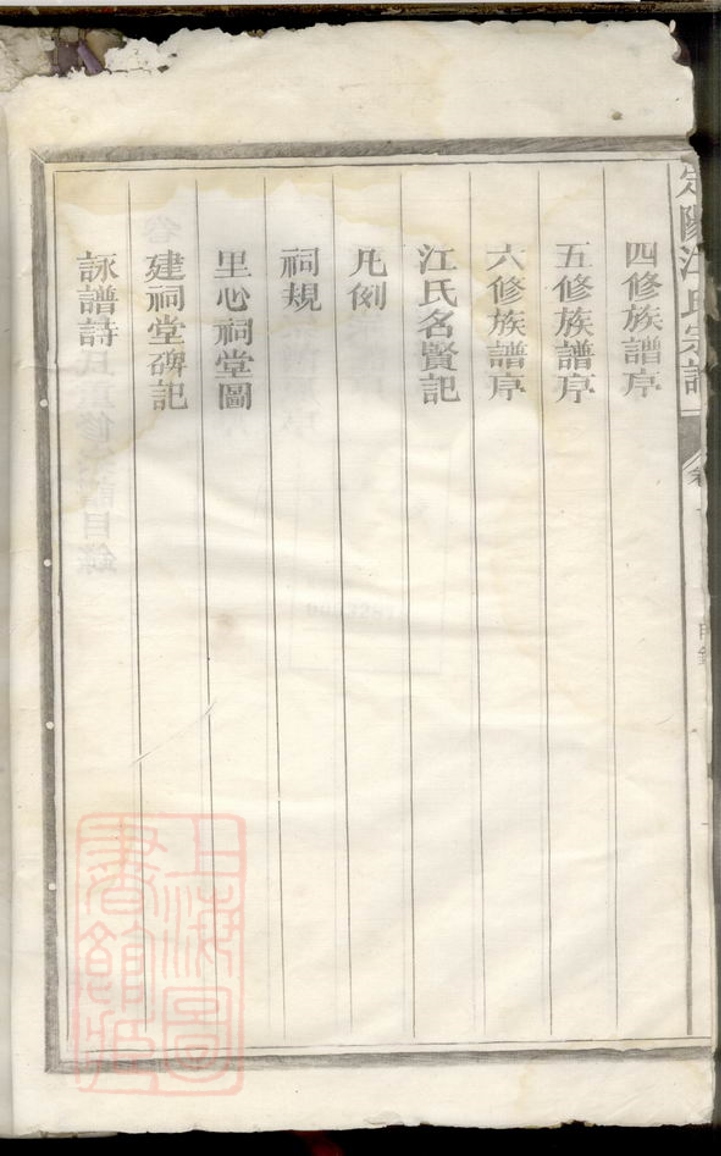 江氏宗譜
四修族譜序
五修族譜序
六修族譜序
江氏名賢記
凡例
祠規
里心祠堂圖
建祠堂碑記
詠譜詩
上海圖
書館藏